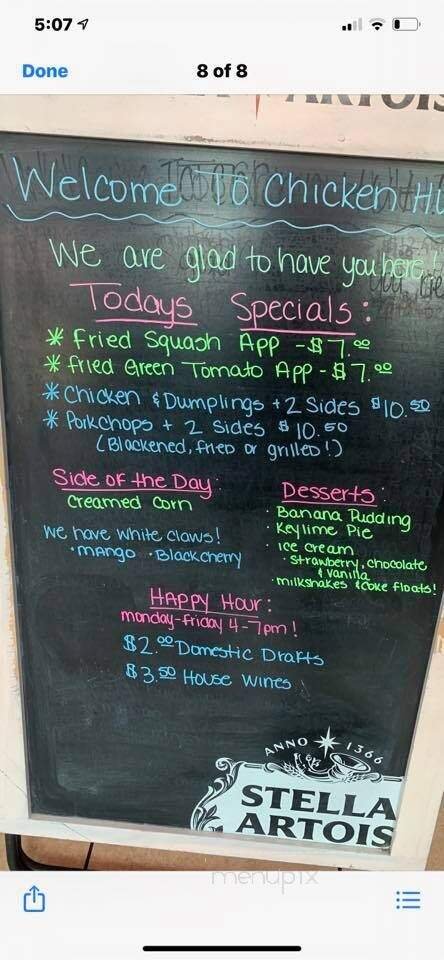 5:07
Done
8 of 8
ARTOIS
Welcome To Chicken
We are glad to have you here!
Todays Specials:
* Fried Squash App - $7.00
* Fried Green Tomato App - $7.00
* Chicken & Dumplings + 2 Sides $10.50
* Porkchops + 2 sides $10.50
(Blackened, fried or grilled!)
Side of the Day:
Creamed Corn
We have white claws!
• mango • Blackcherry
Desserts:
• Banana Pudding
• Keylime Pie
• ice cream
• strawberry, chocolate
& vanilla
• milkshakes & coke floats!
Happy Hour:
monday-Friday 4-7pm!
$2.00 Domestic Drafts
$3.50 House wines
ANNO 1366
STELLA
ARTOIS
menupix